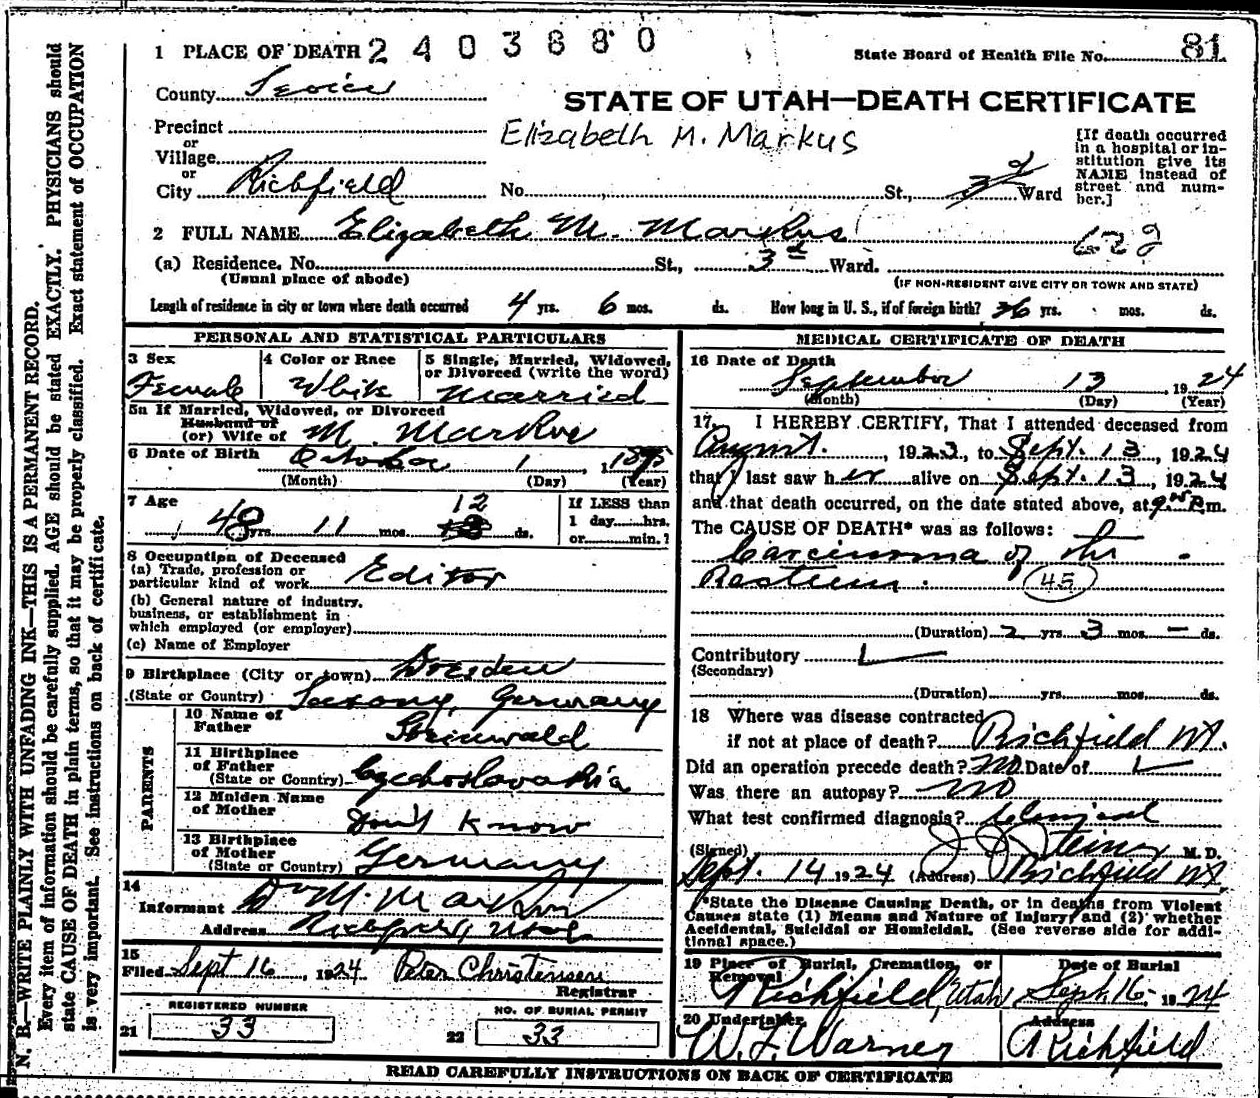 1 PLACE OF DEATH 2 4 0 3 8 8 0
State Board of Health File No. 81
County Sevier
STATE OF UTAH—DEATH CERTIFICATE
Precinct
or
Village
or
City Richfield No. St., 3d Ward
Elizabeth M. Markus
[If death occurred
in a hospital or in-
stitution give its
NAME instead of
street and num-
ber.]
2 FULL NAME Elizabeth M. Markus
(a) Residence. No. St., 3d Ward.
(Usual place of abode)
(IF NON-RESIDENT GIVE CITY OR TOWN AND STATE)
Length of residence in city or town where death occurred 4 yrs. 6 mos. ds. How long in U. S., if of foreign birth? 36 yrs. mos. ds.
PERSONAL AND STATISTICAL PARTICULARS
3 Sex
Female
4 Color or Race
White
5 Single, Married, Widowed,
or Divorced (write the word)
Married
5a If Married, Widowed, or Divorced
Husband of
(or) Wife of M. Markus
6 Date of Birth October 1, 1875
(Month) (Day) (Year)
7 Age
48 yrs. 11 mos. 12 ds.
If LESS than
1 day......hrs.
or......min.?
8 Occupation of Deceased
(a) Trade, profession or
particular kind of work Editor
(b) General nature of industry,
business, or establishment in
which employed (or employer)
(c) Name of Employer
9 Birthplace (City or town) Dresden
(State or Country) Saxony, Germany
PARENTS
10 Name of
Father Steinwald
11 Birthplace
of Father
(State or Country) Czechoslovakia
12 Maiden Name
of Mother Don't Know
13 Birthplace
of Mother
(State or Country) Germany
14
Informant Dr M. Markus
Address Richfield, Utah
15
Filed Sept 16, 1924 Peter Christensen
Registrar
REGISTERED NUMBER
21 33
NO. OF BURIAL PERMIT
22 33
MEDICAL CERTIFICATE OF DEATH
16 Date of Death
September 13, 1924
(Month) (Day) (Year)
17. I HEREBY CERTIFY, That I attended deceased from
August, 1923, to Sept. 13, 1924
that I last saw her alive on Sept. 13, 1924
and that death occurred, on the date stated above, at 9 P.m.
The CAUSE OF DEATH* was as follows:
Carcinoma of the
Rectum. 45
(Duration) 2 yrs. 3 mos. — ds.
Contributory
(Secondary)
(Duration) yrs. mos. ds.
18 Where was disease contracted
if not at place of death? Richfield Ut.
Did an operation precede death? No Date of
Was there an autopsy? No
What test confirmed diagnosis? Clinical
(Signed) J J Steiner M. D.
Sept. 14 1924 (Address) Richfield Ut.
*State the Disease Causing Death, or in deaths from Violent
Causes state (1) Means and Nature of Injury, and (2) whether
Accidental, Suicidal or Homicidal. (See reverse side for addi-
tional space.)
19 Place of Burial, Cremation, or
Removal
Richfield, Utah
Date of Burial
Sept. 16 1924
20 Undertaker
W. L. Warner
Address
Richfield
READ CAREFULLY INSTRUCTIONS ON BACK OF CERTIFICATE
N. B.—WRITE PLAINLY WITH UNFADING INK—THIS IS A PERMANENT RECORD.
Every item of information should be carefully supplied. AGE should be stated EXACTLY. PHYSICIANS should
state CAUSE OF DEATH in plain terms, so that it may be properly classified. Exact statement of OCCUPATION
is very important. See instructions on back of certificate.